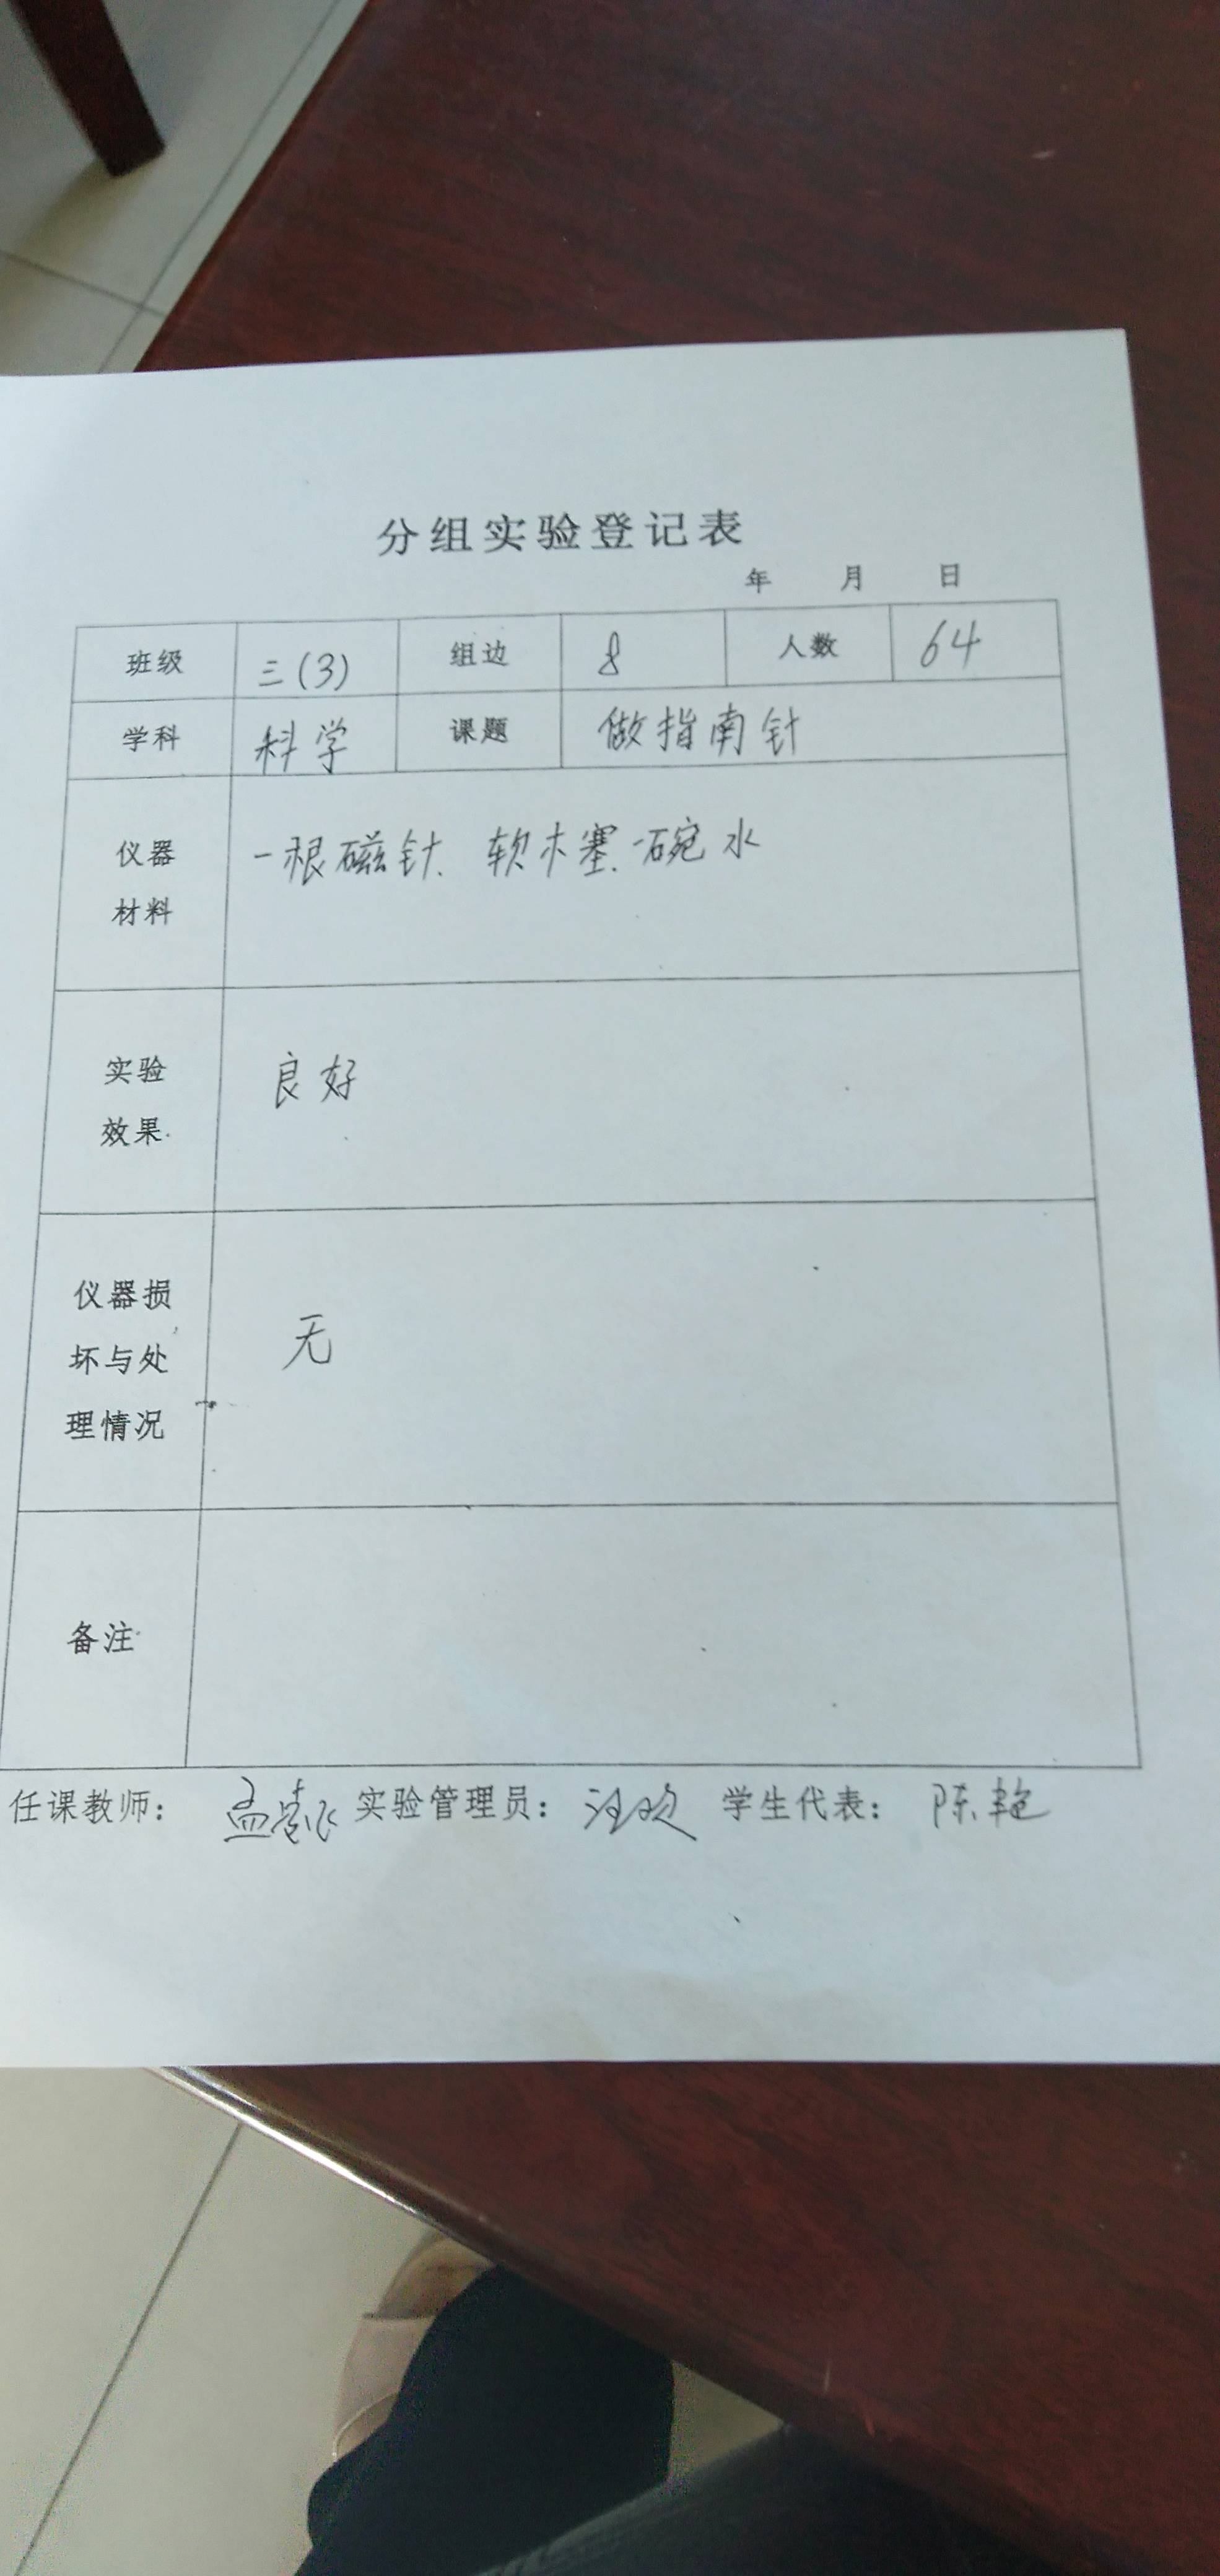 分组实验登记表
年 月 日
班级 三(3) 组边 8 人数 64
学科 科学 课题 做指南针
仪器 一根磁针、软木塞、一碗水
材料
实验 良好
效果
仪器损
坏与处 无
理情况
备注
任课教师： 孟 实验管理员： 汪欢 学生代表： 陈艳